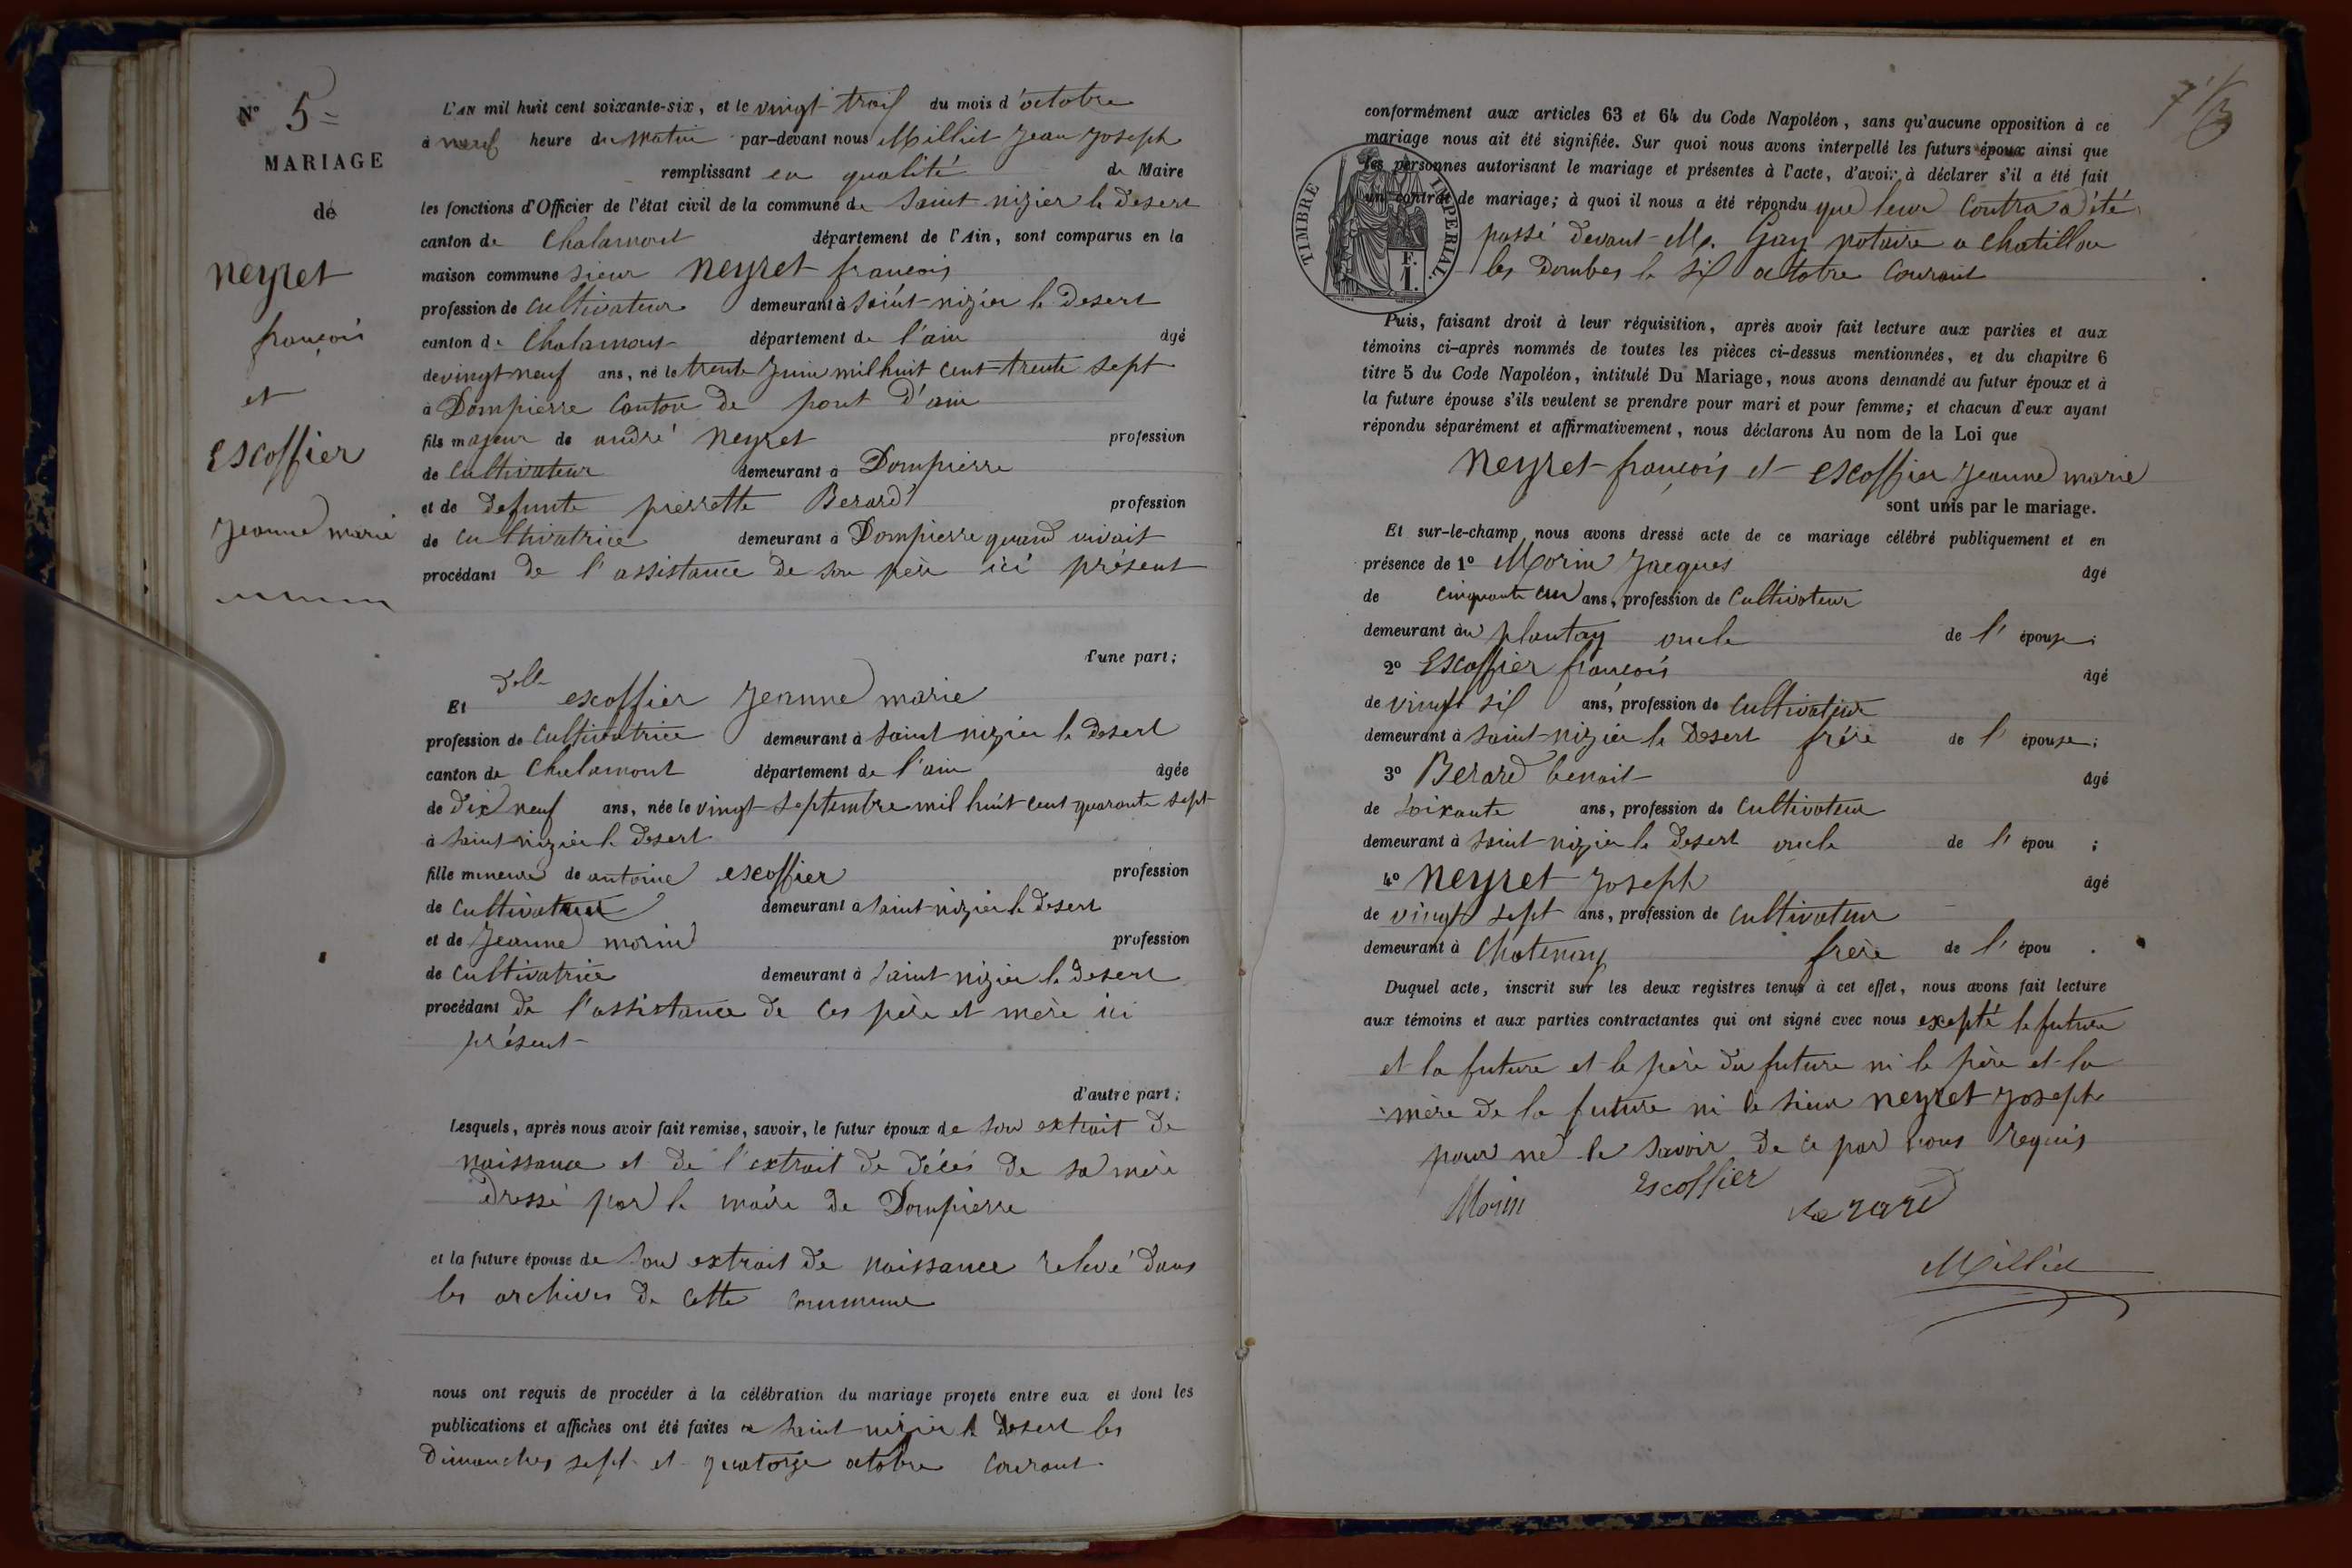 N° 5=
MARIAGE
de
neyret
françois
et
Escoffier
Jeanne marie
L'AN mil huit cent soixante-six, et le vingt trois du mois d'octobre
à neuf heure du matin par-devant nous Milliet Jean Joseph
remplissant en qualité de Maire
les fonctions d'Officier de l'état civil de la commune de Saint nizier le Desert
canton de Chalamont département de l'Ain, sont comparus en la
maison commune sieur neyret françois
profession de cultivateur demeurant à saint nizier le desert
canton de Chalamont département de l'ain âgé
de vingt neuf ans, né le trente Juin mil huit cent trente sept
à Dompierre Canton de pont d'ain
fils majeur de andré neyret profession
de cultivateur demeurant à Dompierre
et de defunte pierrette Berard profession
de cultivatrice demeurant à Dompierre quand vivait
procédant de l'assistance de son père ici présent
d'une part;
Et Delle escoffier Jeanne marie
profession de cultivatrice demeurant à saint nizier le desert
canton de Chalamont département de l'ain âgée
de dix neuf ans, née le vingt septembre mil huit cent quarante sept
à saint nizier le desert
fille mineure de antoine escoffier profession
de cultivateur demeurant à saint nizier le desert
et de Jeanne morin profession
de cultivatrice demeurant à saint nizier le desert
procédant de l'assistance de ces père et mère ici
présent
d'autre part;
Lesquels, après nous avoir fait remise, savoir, le futur époux de son extrait de
naissance et de l'extrait de décès de sa mère
dressé par le maire de Dompierre
et la future épouse de son extrait de naissance relevé dans
les archives de cette commune
nous ont requis de procéder à la célébration du mariage projeté entre eux et dont les
publications et affiches ont été faites a saint nizier le desert les
Dimanches sept et quatorze octobre courant
conformément aux articles 63 et 64 du Code Napoléon, sans qu'aucune opposition à ce
mariage nous ait été signifiée. Sur quoi nous avons interpellé les futurs époux ainsi que
les personnes autorisant le mariage et présentes à l'acte, d'avoir à déclarer s'il a été fait
un contrat de mariage; à quoi il nous a été répondu que leur Contra a été
passé devant Me. Gay notaire a chatillon
les Dombes le six octobre courant
TIMBRE IMPERIAL.
1 F.
Puis, faisant droit à leur réquisition, après avoir fait lecture aux parties et aux
témoins ci-après nommés de toutes les pièces ci-dessus mentionnées, et du chapitre 6
titre 5 du Code Napoléon, intitulé Du Mariage, nous avons demandé au futur époux et à
la future épouse s'ils veulent se prendre pour mari et pour femme; et chacun d'eux ayant
répondu séparément et affirmativement, nous déclarons Au nom de la Loi que
neyret françois et escoffier Jeanne marie
sont unis par le mariage.
Et sur-le-champ nous avons dressé acte de ce mariage célébré publiquement et en
présence de 1° Morin Jacques âgé
de cinquante un ans, profession de Cultivateur
demeurant au plantay oncle de l'épouse;
2° Escoffier françois âgé
de vingt six ans, profession de cultivateur
demeurant à saint nizier le Desert frère de l'épouse;
3° Berard benoit âgé
de soixante ans, profession de cultivateur
demeurant à saint nizier le desert oncle de l'épou ;
4° neyret Joseph âgé
de vingt sept ans, profession de cultivateur
demeurant à Chatenay frère de l'épou .
Duquel acte, inscrit sur les deux registres tenus à cet effet, nous avons fait lecture
aux témoins et aux parties contractantes qui ont signé avec nous excepté le future
et la future et le père du future ni le père et la
mère de la future ni le sieur neyret Joseph
pour ne le savoir de ce par nous requis
Morin Escoffier
Milliet